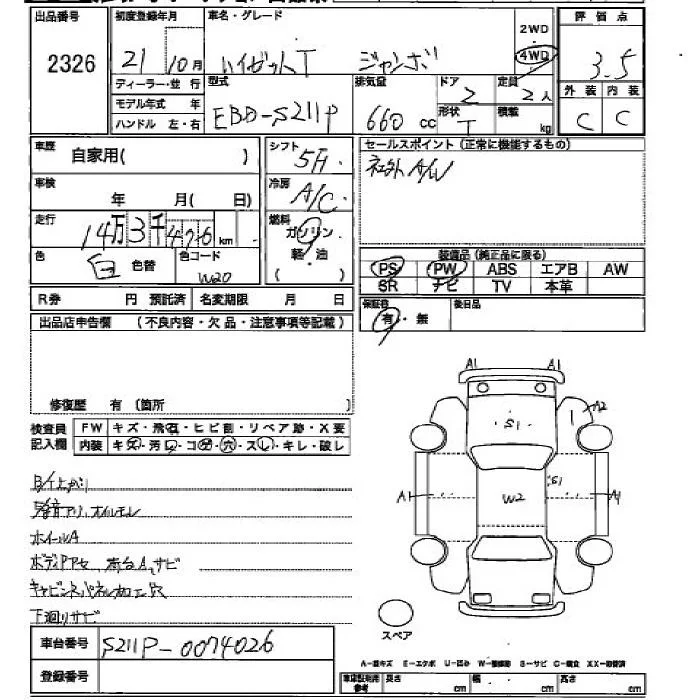 出品番号 初度登録年月 車名・グレード 2WD 評価点
2326 21 10月 ハイゼットT ジャンボ 4WD 3.5
ディーラー・並行 型式 排気量 ドア 定員 外装 内装
モデル年式 年 EBD-S211P 660 CC 2 2人 C C
ハンドル 左・右 形状 T 積載 kg
車歴 自家用( ) シフト 5F. セールスポイント (正常に機能するもの)
車検 年 月(日) 冷房 A/C 社外A/W
走行 14万3千476km 燃料 ガソリン
色 白 色替 色コード W20 軽・油 ( )
装備品 (純正品に限る)
PS PW ABS エアB AW
SR ナビ TV 本革
R券 円 預託済 名変期限 月 日
保証書 有・無 後日品
出品店申告欄 (不良内容・欠品・注意事項等記載)
修復歴 有 (箇所 )
検査員 FW キズ・飛石・ヒビ割・リペア跡・X要
記入欄 内装 キズ・汚レ・コゲ・穴・スレ・キレ・破レ
異音アリ、オイルモレ
ホイールA
荷台A、サビ
下廻りサビ
A1 A1
S1 A2
S1
A1 W2 A1
スペア
車台番号 S211P-0074026
登録番号
A-線キズ E-エクボ U-凹み S-サビ C-腐食
参考 長さ cm 幅 cm 高さ cm